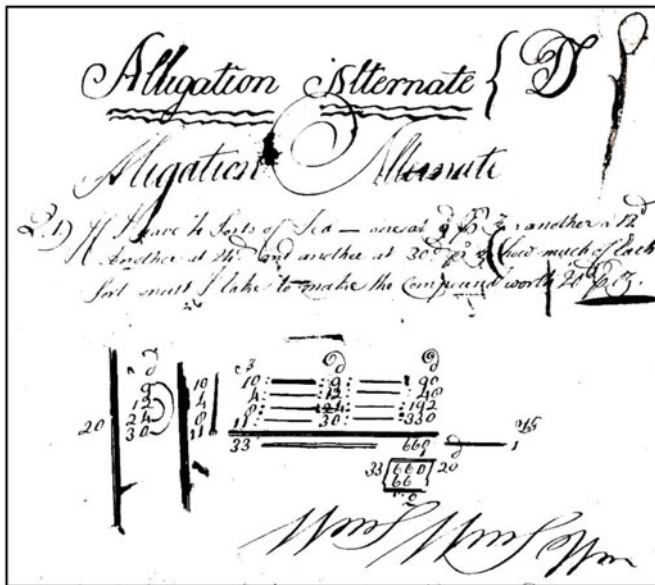 Alligation Alternate { D
Alligation Alternate
Q.1) If I have 4 Sorts of Tea — one at 9d p. oz another a 12d
Another at 24d and another at 30d p. oz how much of Each
Sort must I take to make the Compound worth 20d p. oz.
20 9 10 10 : 9 : 90
12 4 4 : 12 : 48
24 8 8 : 24 : 192
30 11 11 : 30 : 330
33 660 1
33 660 20
66
0
Wm